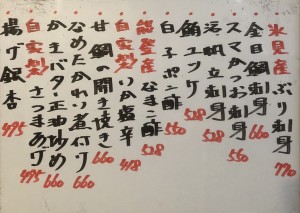 氷見産 ぶり刺身 770
金目鯛刺身 660
スマかつお刺身 550
活〆帆立刺身 528
鮪ユッケ 550
白子ポン酢 528
能登産 なまこ酢 528
自家製 いか塩辛 418
甘鯛の開き焼き 660
なめたかれい煮付け 660
かきバタ正油炒め 660
自家製 さつまあげ 495
揚げ銀杏 495